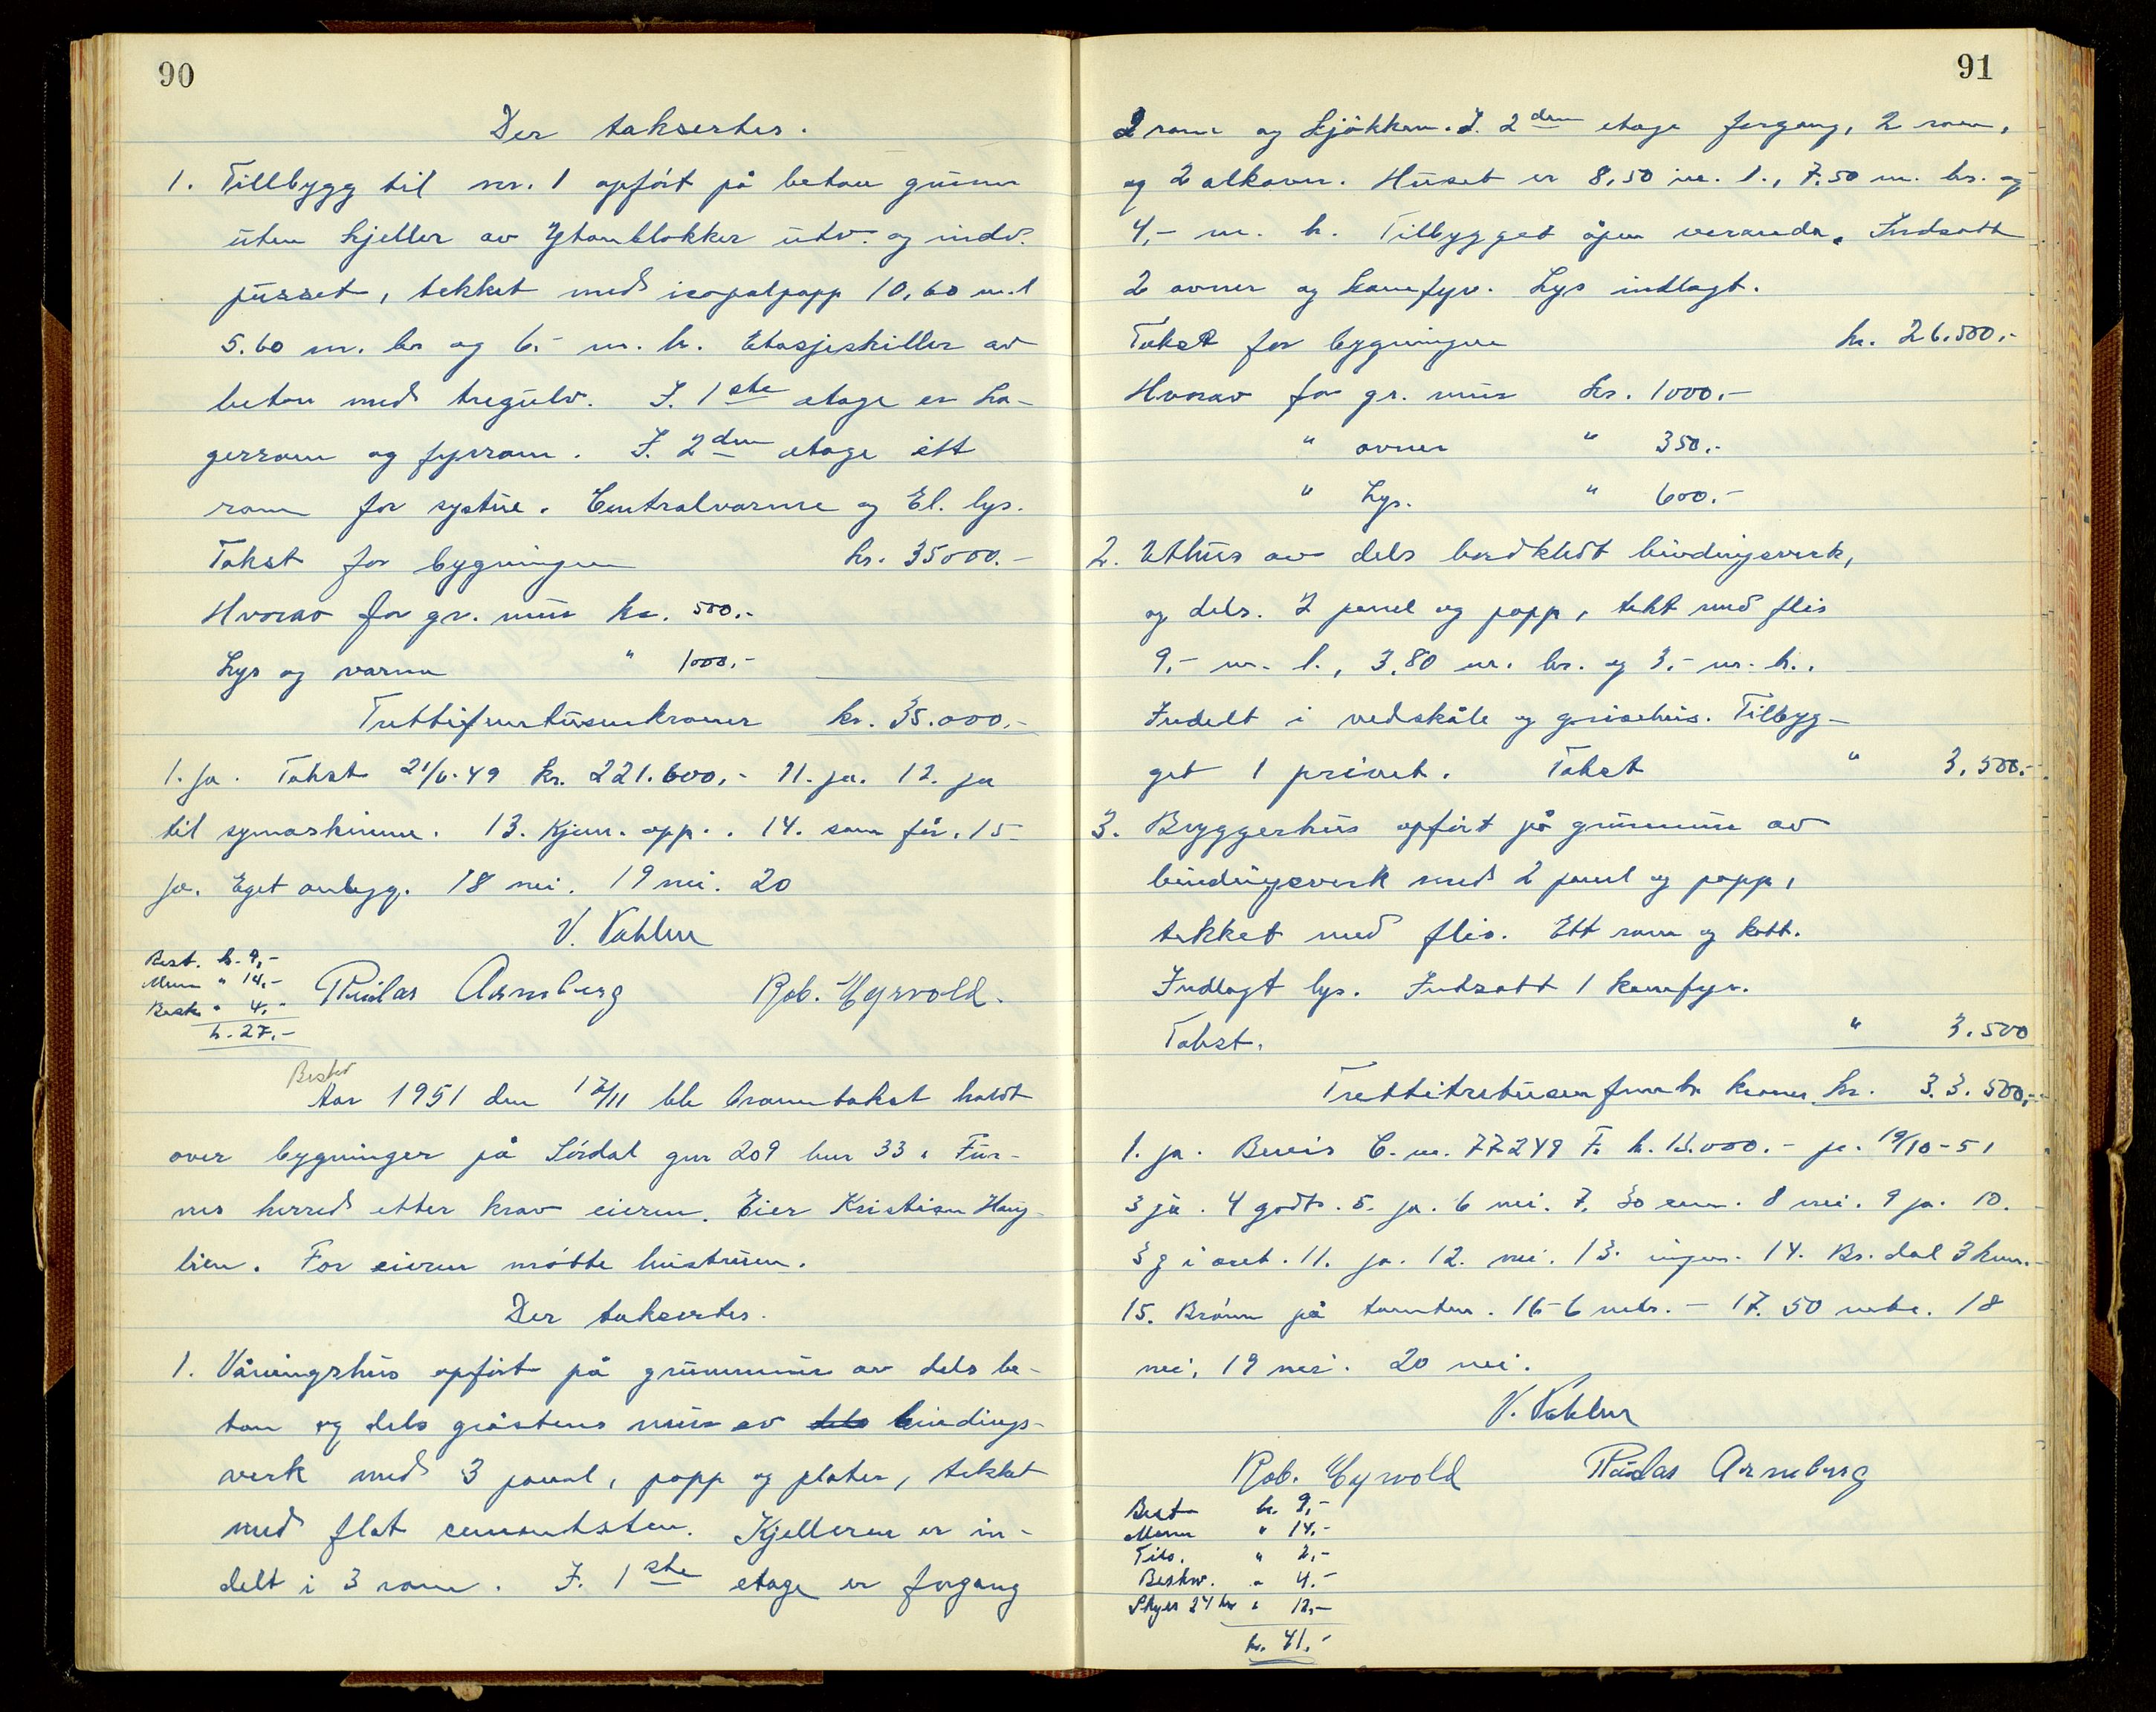 90
Der taksertes.
1. Tillbygg til nr. 1 opført på betong grunn
uten kjeller av Ytonblokker utv. og indv.
pusset, tekket med isopalpapp 10,60 m. l
5.60 m. br og 6.- m. h. Etasjeskiller av
beton med tregulv. I. 1ste etage er la-
gerrom og fyrrom. I. 2den etage ett
rom for systue. Centralvarme og El. lys.
Takst for bygningen kr. 35000.-
Hvorav for gr. mur kr. 500.-
Lys og varme " 1000.-
Trettifemtusenkroner kr. 35.000.-
1. ja. Takst 21/6.49 kr. 221.600,- 11. ja. 12. ja
til symaskinene. 13. Kjem. app.. 14. som før. 15
ja. Eget anlegg. 18 nei. 19 nei. 20
V. Vahlen
Best. kr. 9,-
Menn " 14,-
Beskr " 4,-
kr. 27,-
Arneberg Rob. Hyrvold.
Beskr
Aar 1951 den 12/11 ble branntakst holdt
over bygninger på Lørdal gnr 209 bnr 33 i Fur-
nes herred etter krav eieren. Eier Kristian Haug-
lien. For eieren møtte hustruen.
Der taksertes.
1. Våningshus opført på grunnmur av dels be-
ton og dels gråstens mur av dels bindings-
verk med 3 panel, papp og plater, tekket
med flat cementsten. Kjelleren er in-
delt i 3 rom. I. 1ste etage er forgang
91
2 rom og kjøkken. I. 2den etage forgang, 2 rom,
og 2 alkover. Huset er 8,50 m. l., 7.50 m. br. og
4,- m. h. Tilbygget åpen veranda. Indsatt
2 ovner og komfyr. Lys indlagt.
Takst for bygningen kr. 26.500.-
Hvorav for gr. mur kr. 1000.-
" ovner " 350.-
" Lys. " 600.-
2. Uthus av dels bordkledt bindingsverk,
og dels. 2 panel og papp, tekt med flis
9,- m. l., 3,80 m. br. og 3,- m. h..
Indelt i vedskåle og grisehus. Tilbyg-
get 1 privet. Takst " 3.500.-
3. Bryggerhus opført på grunnmur av
bindingsverk med 2 panel og papp,
tekket med flis. Ett rom og kott.
Indlagt lys. Indsatt 1 komfyr.
Takst. " 3.500
Trettitretusenfemh. kroner kr. 33.500,-
1. ja. Bevis C. nr. 77249 F. kr. 13.000.- pr. 19/10-51
3 ja. 4 godt. 5. ja. 6 nei. 7. 30 cm. 8 nei. 9 ja. 10.
3 g i året. 11. ja. 12. nei. 13. ingen. 14. Br.dal 3 km.-
15. Brønn på tomten. 16 - 6 metr. - 17. 50 metr. 18
nei, 19 nei. 20 nei.
V. Vahlen
Rob. Hyrvold Arneberg
Best kr. 9,-
Menn " 14,-
Tils. " 2,-
Beskr. " 4.-
Skyss 24 km " 12,-
kr. 41.-